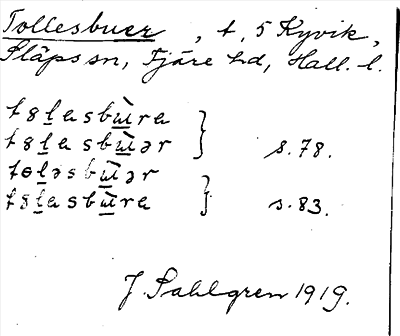 Tollesbuer, t, 5 Kyvik,
Släps sn, Fjäre hd, Hall. l.
tɞlasbu̇ra
tɞlasbu̇ər } s. 78.
tɵləsbu̇ər
tɞlasbu̇ra } s. 83.
J. Sahlgren 1919.